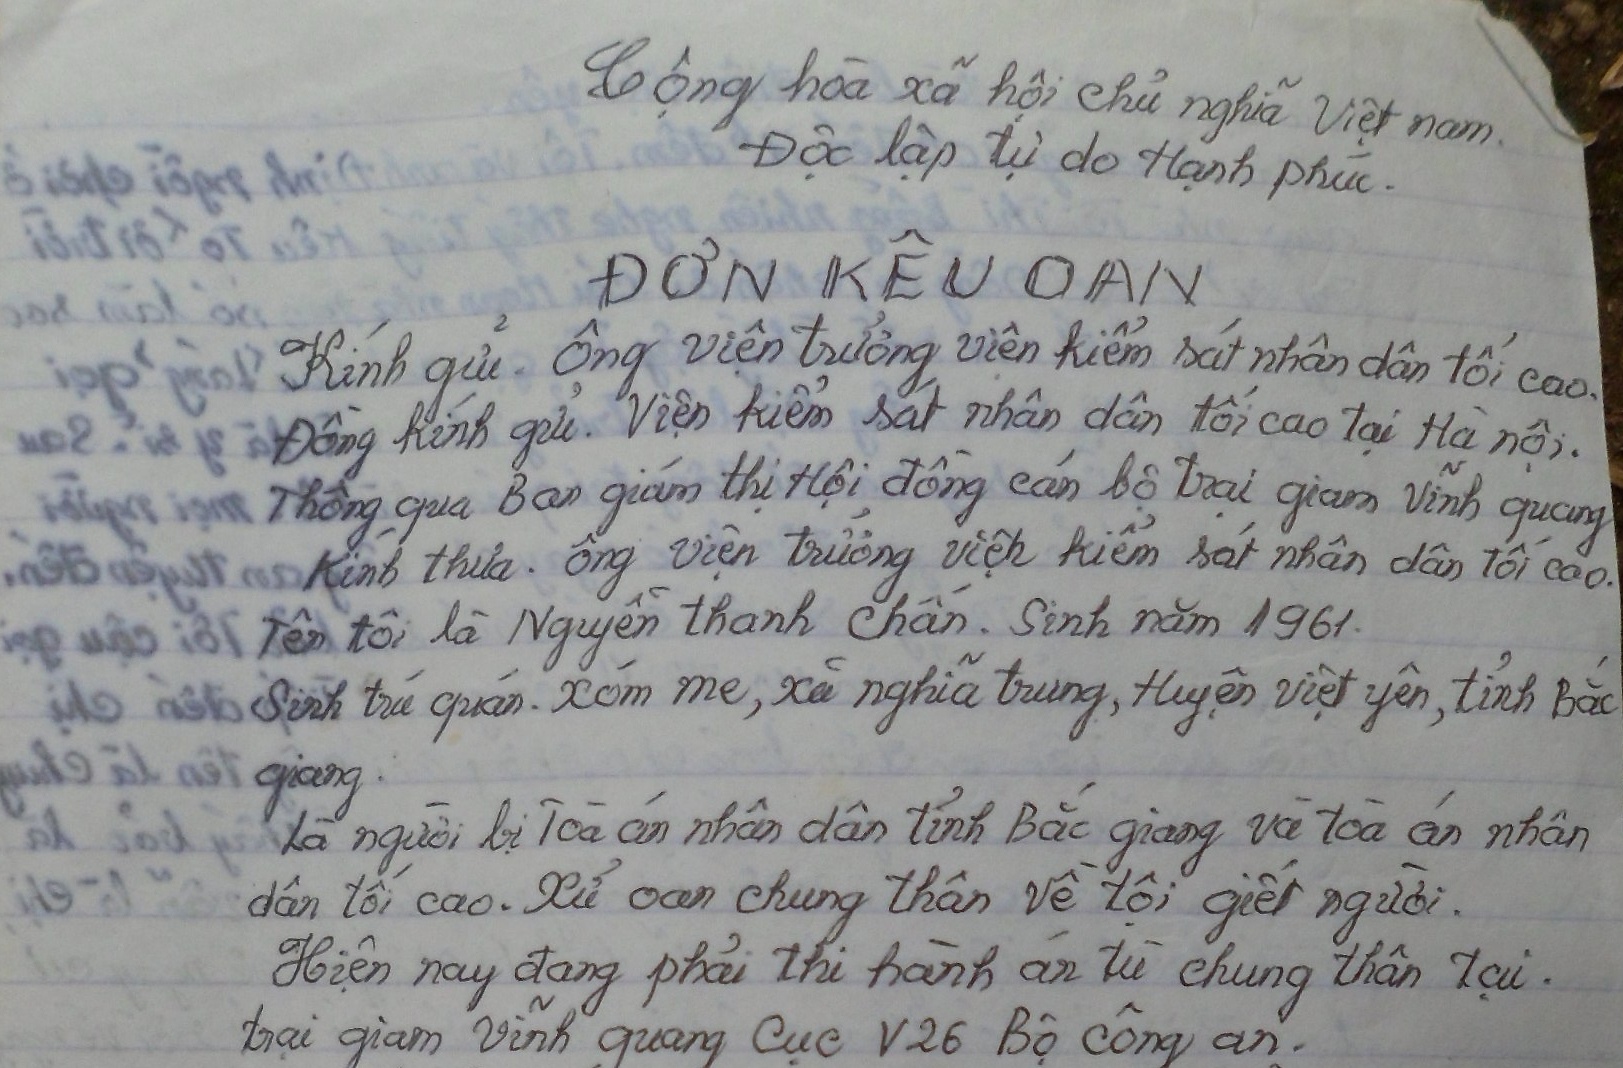 Cộng hòa xã hội chủ nghĩa Việt nam.
Độc lập tự do Hạnh phúc.
ĐƠN KÊU OAN
Kính gửi. Ông viện trưởng viện kiểm sát nhân dân tối cao.
Đồng kính gửi. Viện kiểm sát nhân dân tối cao tại Hà nội.
Thông qua Ban giám thị Hội đồng cán bộ trại giam Vĩnh quang
Kính thưa. ông viện trưởng viện kiểm sát nhân dân tối cao.
Tên tôi là Nguyễn thanh Chấn. Sinh năm 1961.
Sinh trú quán. xóm me, xã nghĩa trung, Huyện việt yên, tỉnh Bắc
giang.
Là người bị Toà án nhân dân tỉnh Bắc giang và toà án nhân
dân tối cao. Xử oan chung thân về tội giết người.
Hiện nay đang phải thi hành án tù chung thân tại.
trại giam Vĩnh quang Cục V26 Bộ công an.